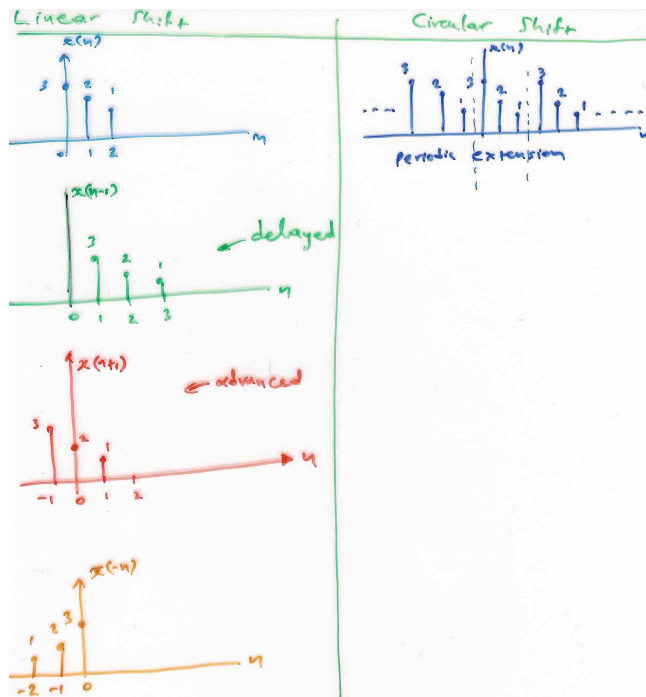 Linear Shift
x(n)
3 2 1
0 1 2
n
x(n-1)
3 2 1
delayed
0 1 2 3
n
x(n+1)
advanced
3 2 1
n
-1 0 1 2
x(-n)
1 2 3
-2 -1 0
n
Circular Shift
x(n)
3 2 1 3 2 1 3 2 1
n
periodic extension